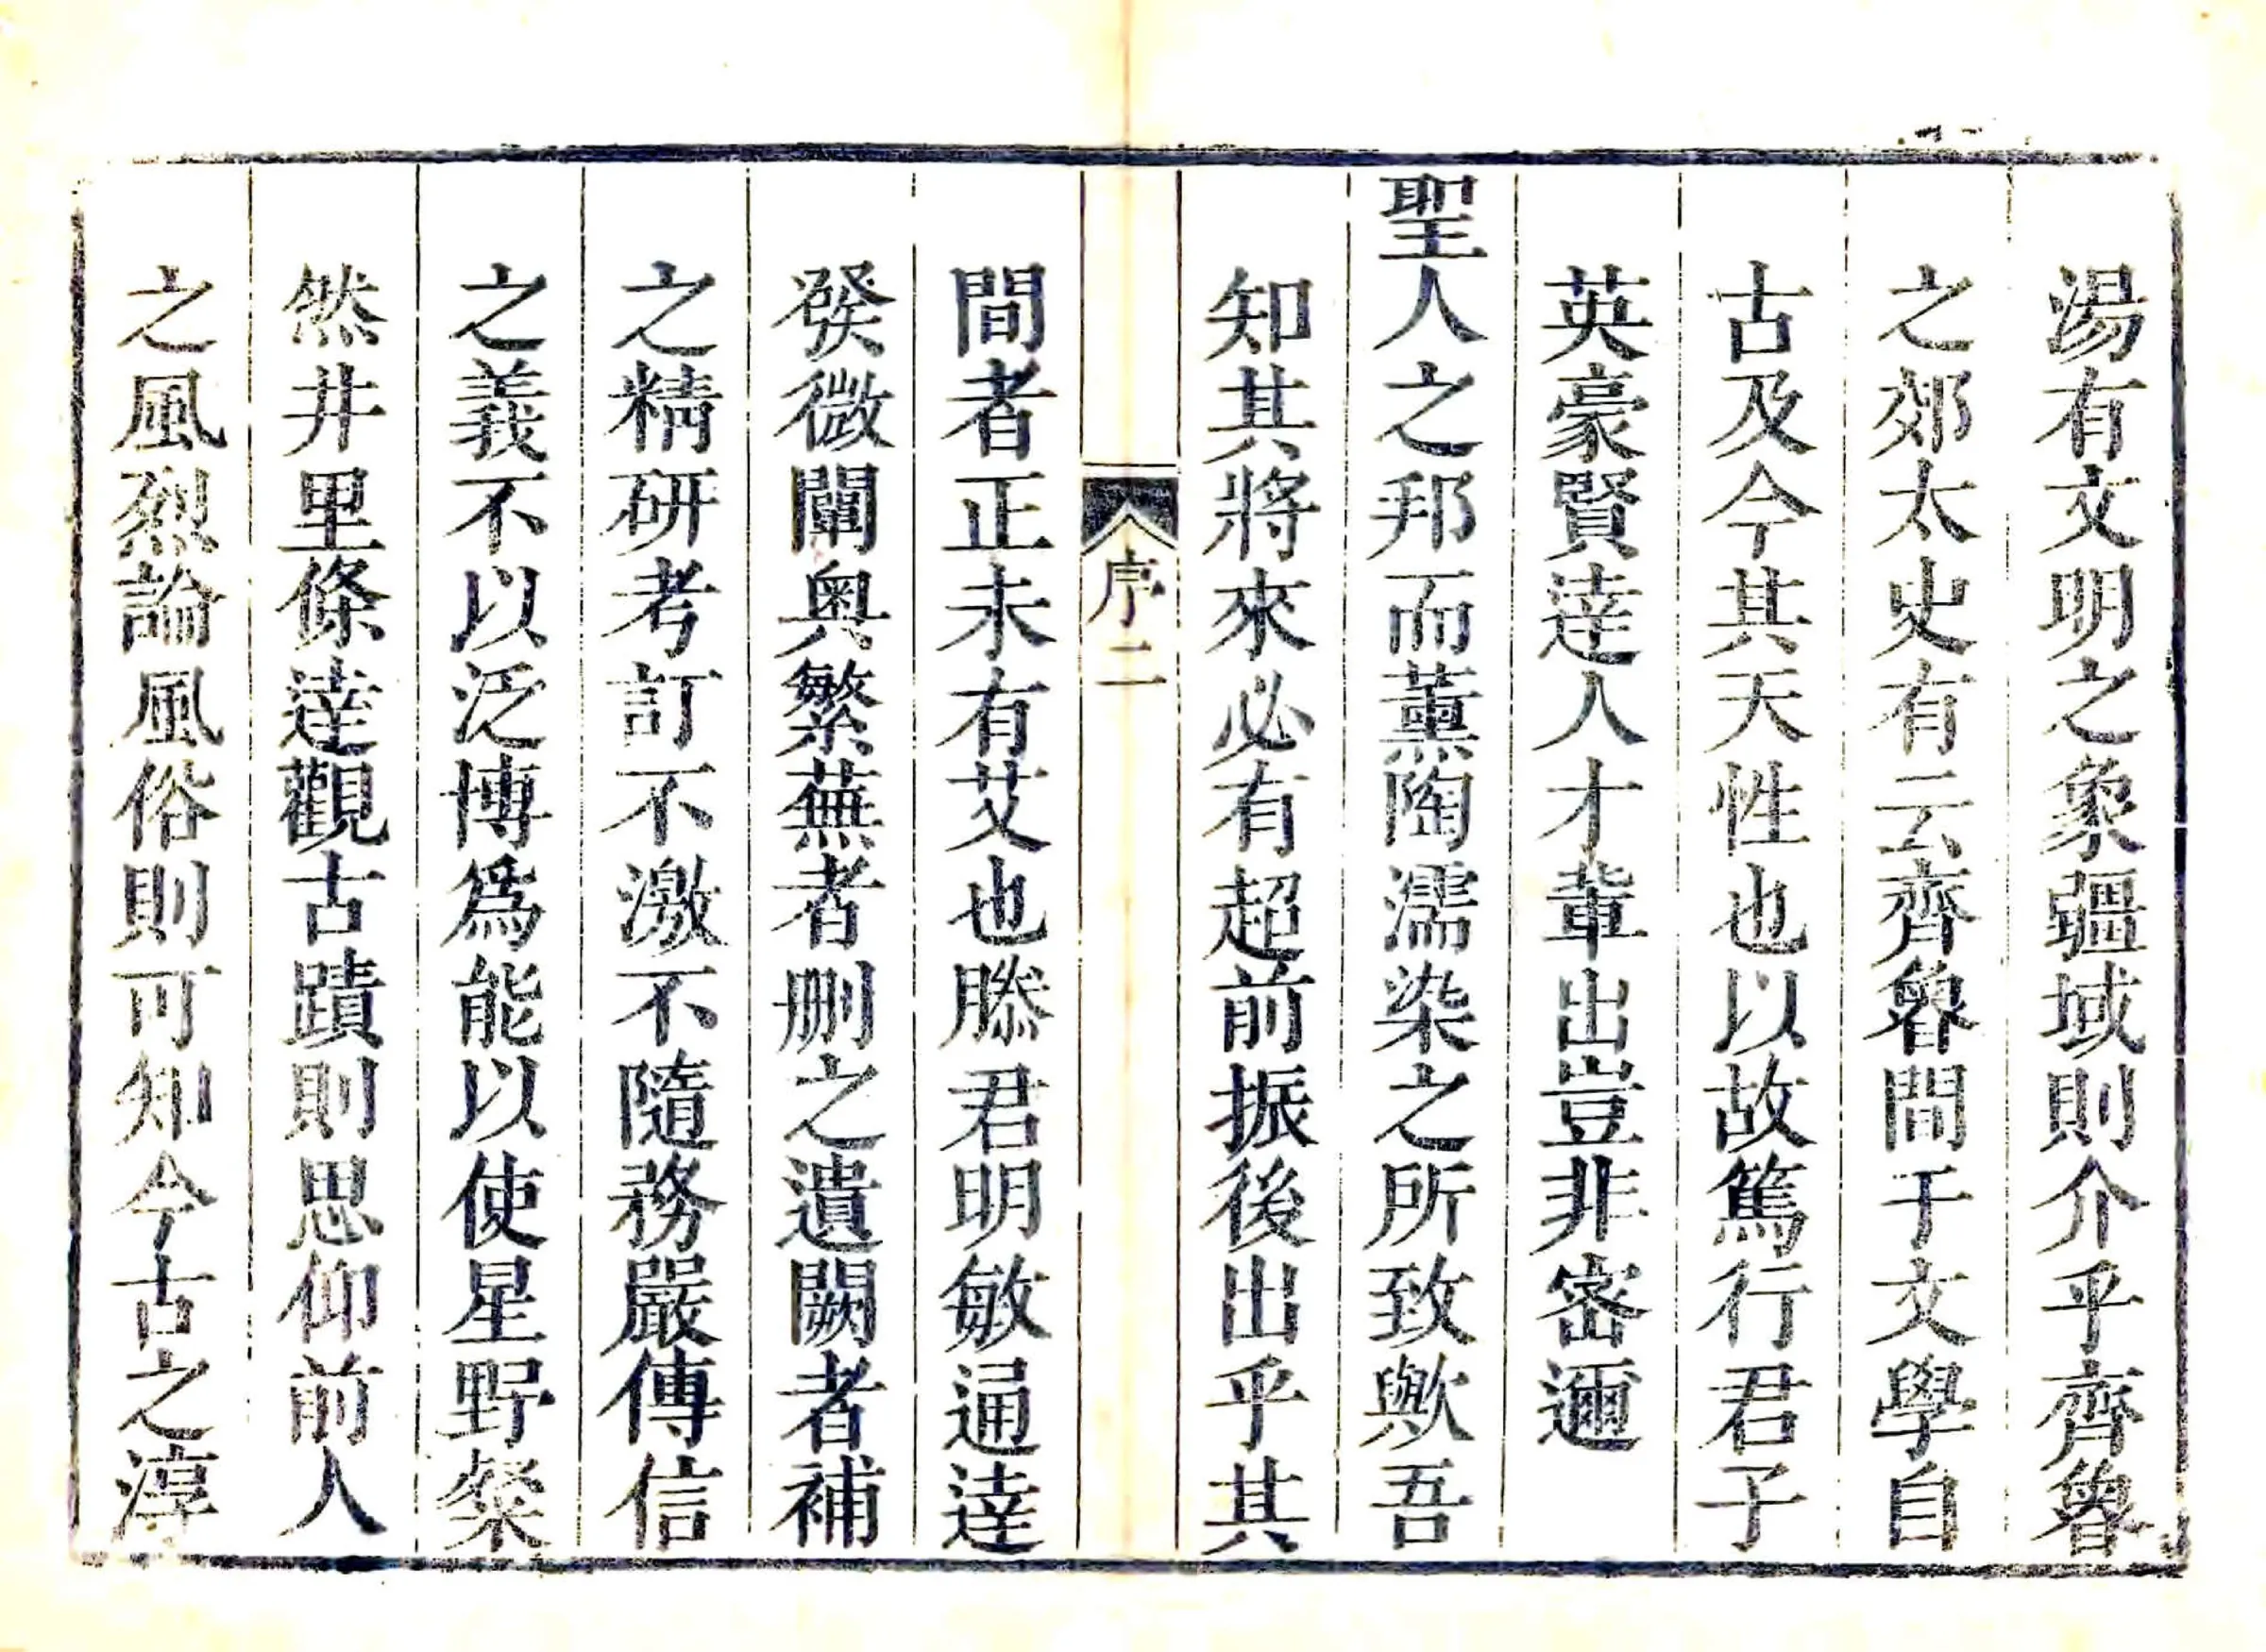 湯有文明之象疆域則介乎齊魯
之郊太史有云齊魯間于文學自
古及今其天性也以故篤行君子
英豪賢達人才輩出豈非密邇
聖人之邦而薰陶濡染之所致歟吾
知其將來必有超前振後出乎其
序二
間者正未有艾也滕君明敏通達
發微闡奥繁蕪者刪之遺闕者補
之精研考訂不激不隨務嚴傳信
之義不以泛博爲能以使星野粲
然井里條達觀古蹟則思仰前人
之風烈論風俗則可知今古之淳